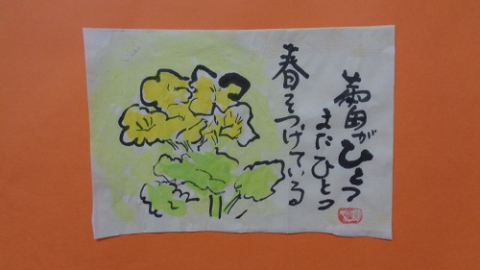 蕾がひとつ
またひとつ
春をつげている